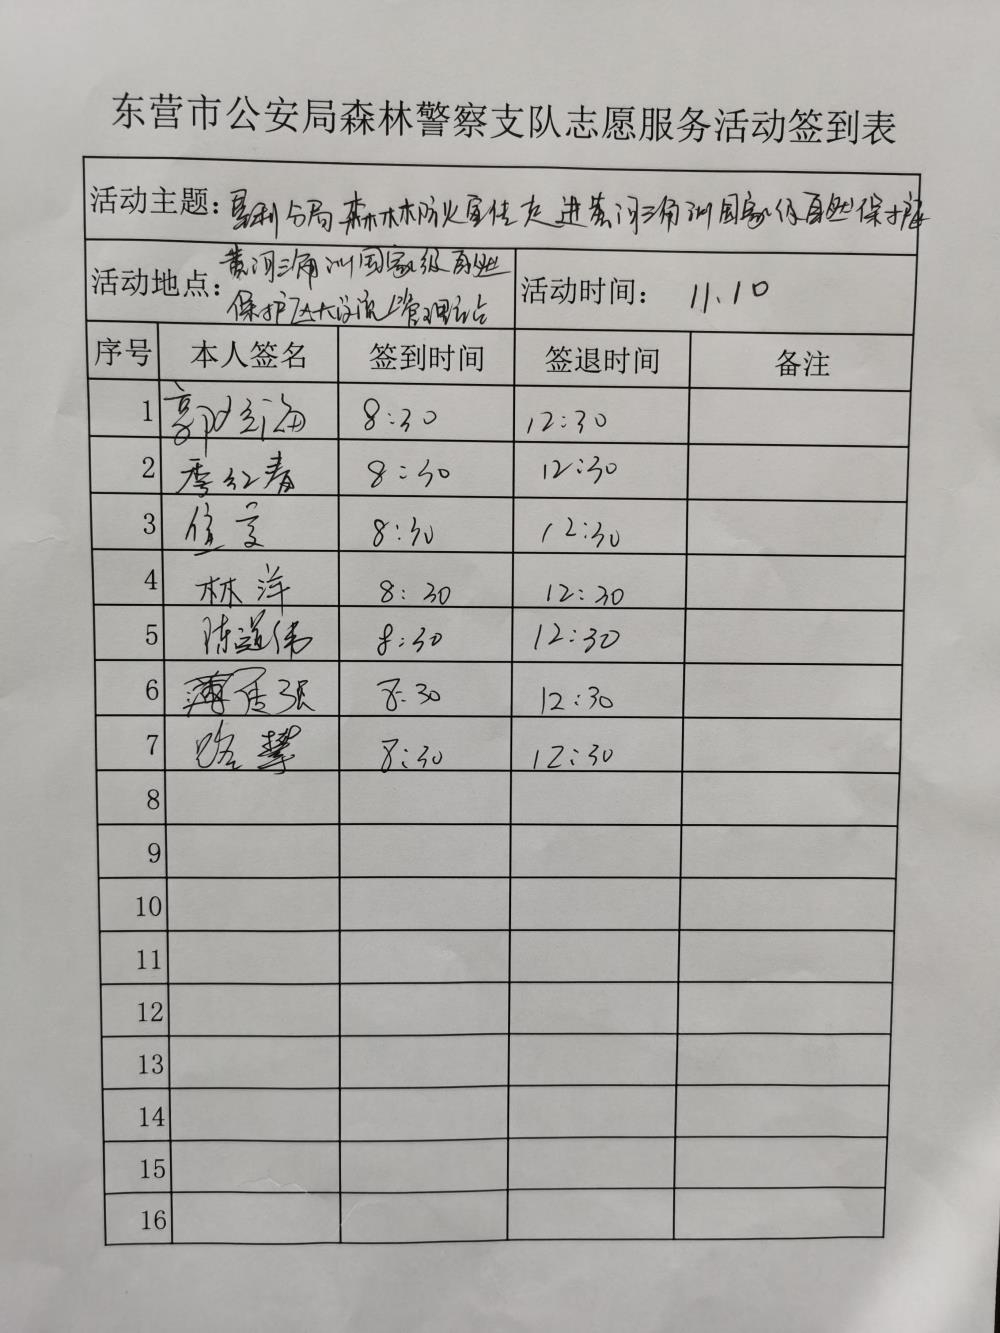 东营市公安局森林警察支队志愿服务活动签到表
活动主题：垦利分局森林防火宣传走进黄河三角洲国家级自然保护区
活动地点：黄河三角洲国家级自然
保护区大汶流管理站
活动时间： 11.10
序号 本人签名 签到时间 签退时间 备注
1 郭 海 8:30 12:30
2 季红春 8:30 12:30
3 8:30 12:30
4 林洋 8:30 12:30
5 陈道伟 8:30 12:30
6 薄 强 8:30 12:30
7 路 8:30 12:30
8
9
10
11
12
13
14
15
16